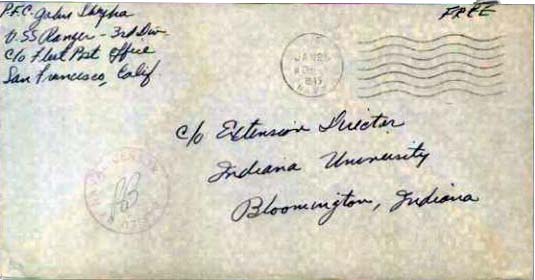 P.F.C. John
USS Ranger - 3rd Div
c/o Fleet Post Office
San Francisco, Calif.
FREE
JAN 25
1945
c/o Extension Director
Indiana University
Bloomington, Indiana